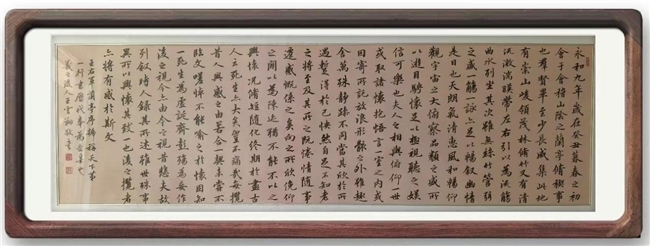 永和九年歲在癸丑暮春之初
會于會稽山陰之蘭亭脩禊事
也羣賢畢至少長咸集此地
有崇山峻領茂林脩竹又有清
流激湍暎帶左右引以為流觴
曲水列坐其次雖無絲竹管弦
之盛一觴一詠亦足以暢叙幽情
是日也天朗氣清惠風和暢仰
觀宇宙之大俯察品類之盛所
以遊目騁懷足以極視聽之娛
信可樂也夫人之相與俯仰一世
或取諸懷抱悟言一室之內或
因寄所託放浪形骸之外雖趣
舍萬殊靜躁不同當其欣於所
遇蹔得於己快然自足不知老
之將至及其所之既惓情隨事
遷感慨係之矣向之所欣俛仰
之間以為陳迹猶不能不以之
興懷況脩短隨化終期於盡古
人云死生亦大矣豈不痛哉每攬
昔人興感之由若合一契未嘗不
臨文嗟悼不能喻之於懷固知
一死生為虛誕齊彭殤為妄作
後之視今亦由今之視昔悲夫故
列叙時人錄其所述雖世殊事
異所以興懷其致一也後之攬者
亦將有感於斯文
王右軍蘭亭序稱天下第
一行書歷代奉為